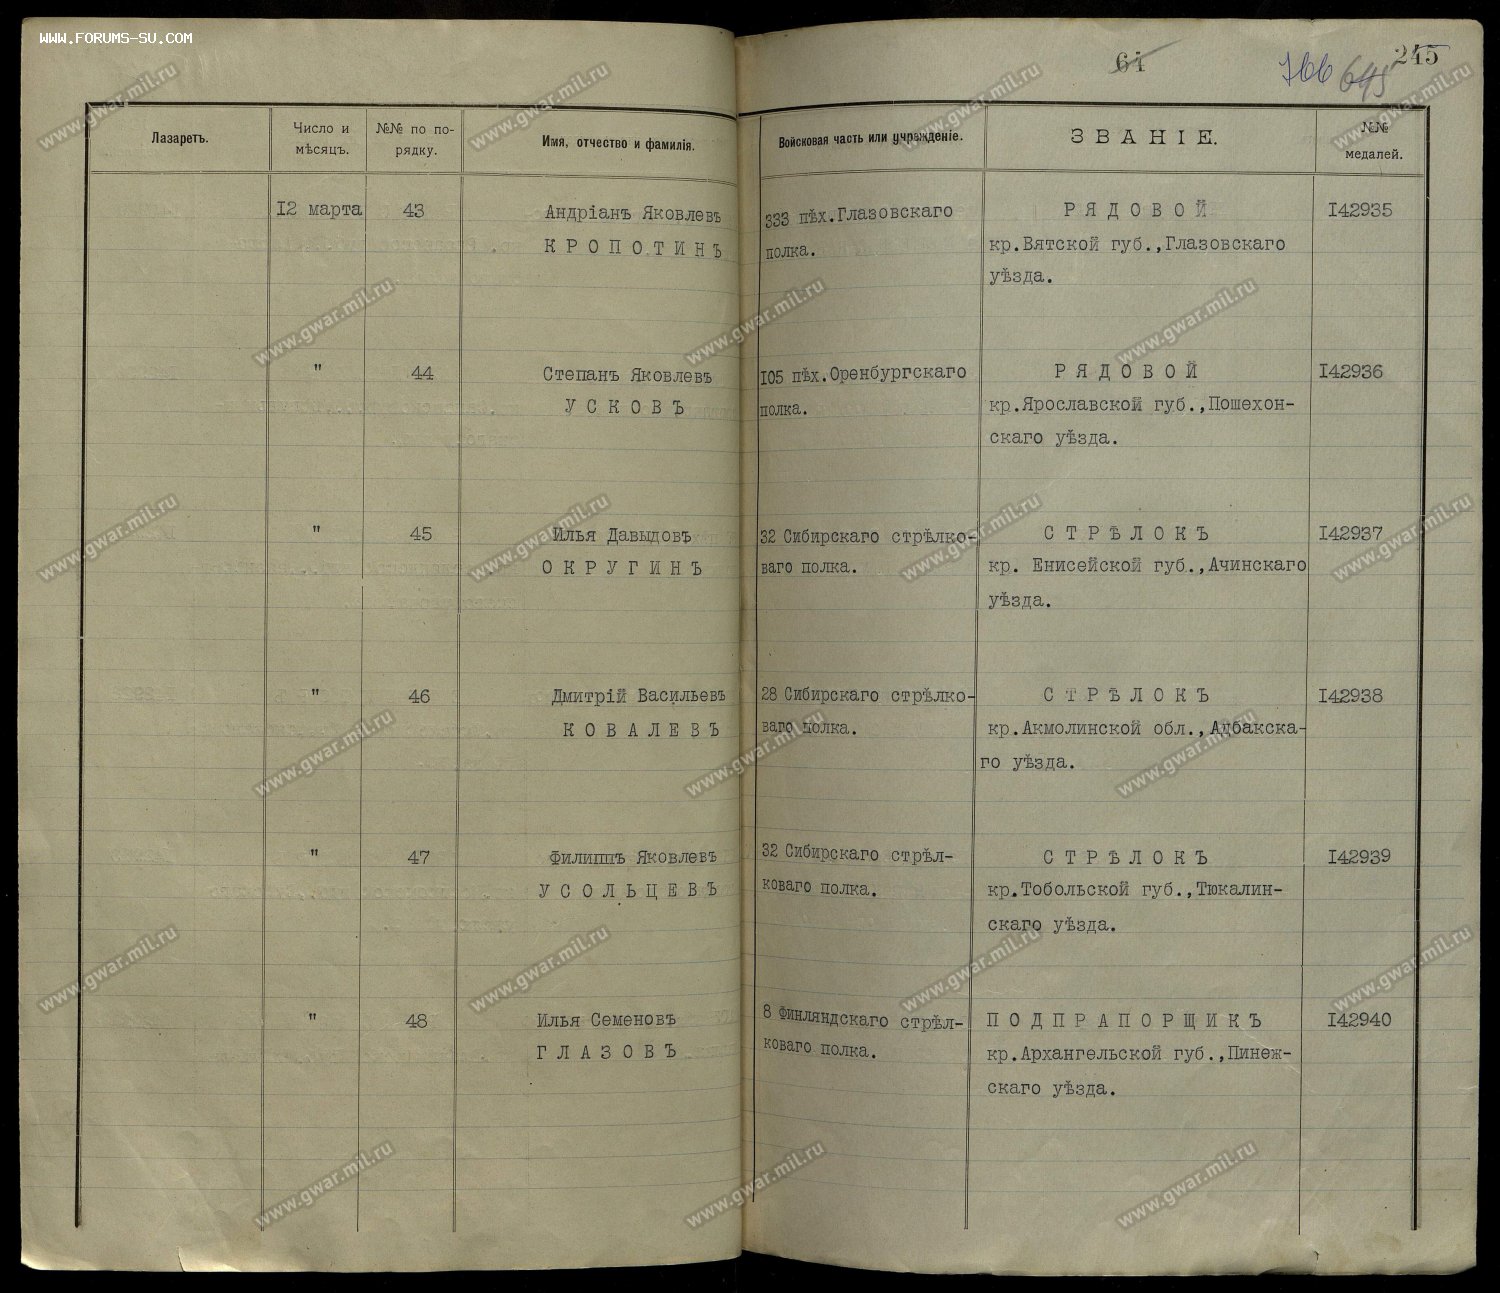 WWW.FORUMS-SU.COM
64
245
Лазаретъ.
Число и
мѣсяцъ.
№№ по по-
рядку.
Имя, отчество и фамилія.
Войсковая часть или учрежденіе.
ЗВАНІЕ.
№№
медалей.
I2 марта
43
Андріанъ Яковлевъ
КРОПОТИНЪ
333 пѣх.Глазовскаго
полка.
РЯДОВОЙ
кр.Вятской губ.,Глазовскаго
уѣзда.
I42935
"
44
Степанъ Яковлевъ
УСКОВЪ
I05 пѣх.Оренбургскаго
полка.
РЯДОВОЙ
кр.Ярославской губ.,Пошехон-
скаго уѣзда.
I42936
"
45
Илья Давыдовъ
ОКРУГИНЪ
32 Сибирскаго стрѣлко-
ваго полка.
СТРѢЛОКЪ
кр. Енисейской губ.,Ачинскаго
уѣзда.
I42937
"
46
Дмитрій Васильевъ
КОВАЛЕВЪ
28 Сибирскаго стрѣлко-
ваго полка.
СТРѢЛОКЪ
кр.Акмолинской обл.,Адбакска-
го уѣзда.
I42938
"
47
Филиппъ Яковлевъ
УСОЛЬЦЕВЪ
32 Сибирскаго стрѣл-
коваго полка.
СТРѢЛОКЪ
кр.Тобольской губ.,Тюкалин-
скаго уѣзда.
I42939
"
48
Илья Семеновъ
ГЛАЗОВЪ
8 Финляндскаго стрѣл-
коваго полка.
ПОДПРАПОРЩИКЪ
кр.Архангельской губ.,Пинеж-
скаго уѣзда.
I42940
www.gwar.mil.ru